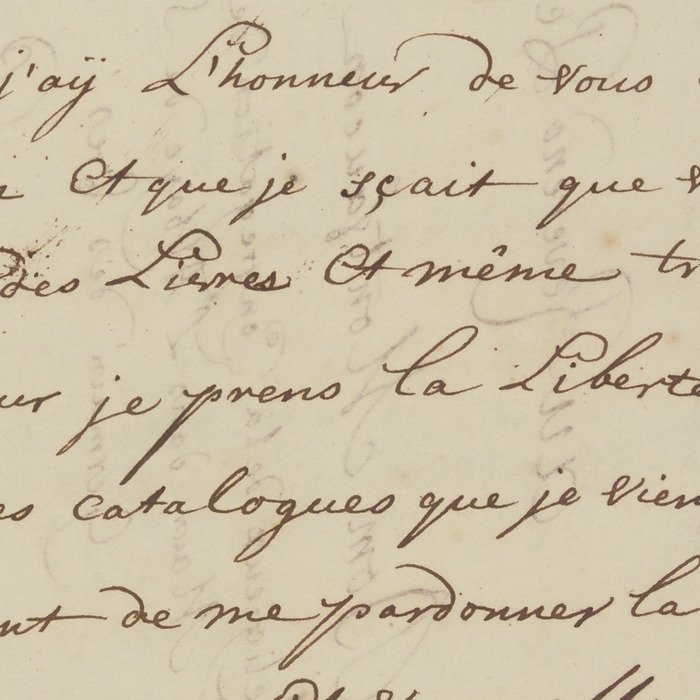 j'aÿ L'honneur de vous
Et que je sçait que
des Lievres Et même tr
ur je prens la Liberte
es catalogues que je vien
nt de me pardonner la